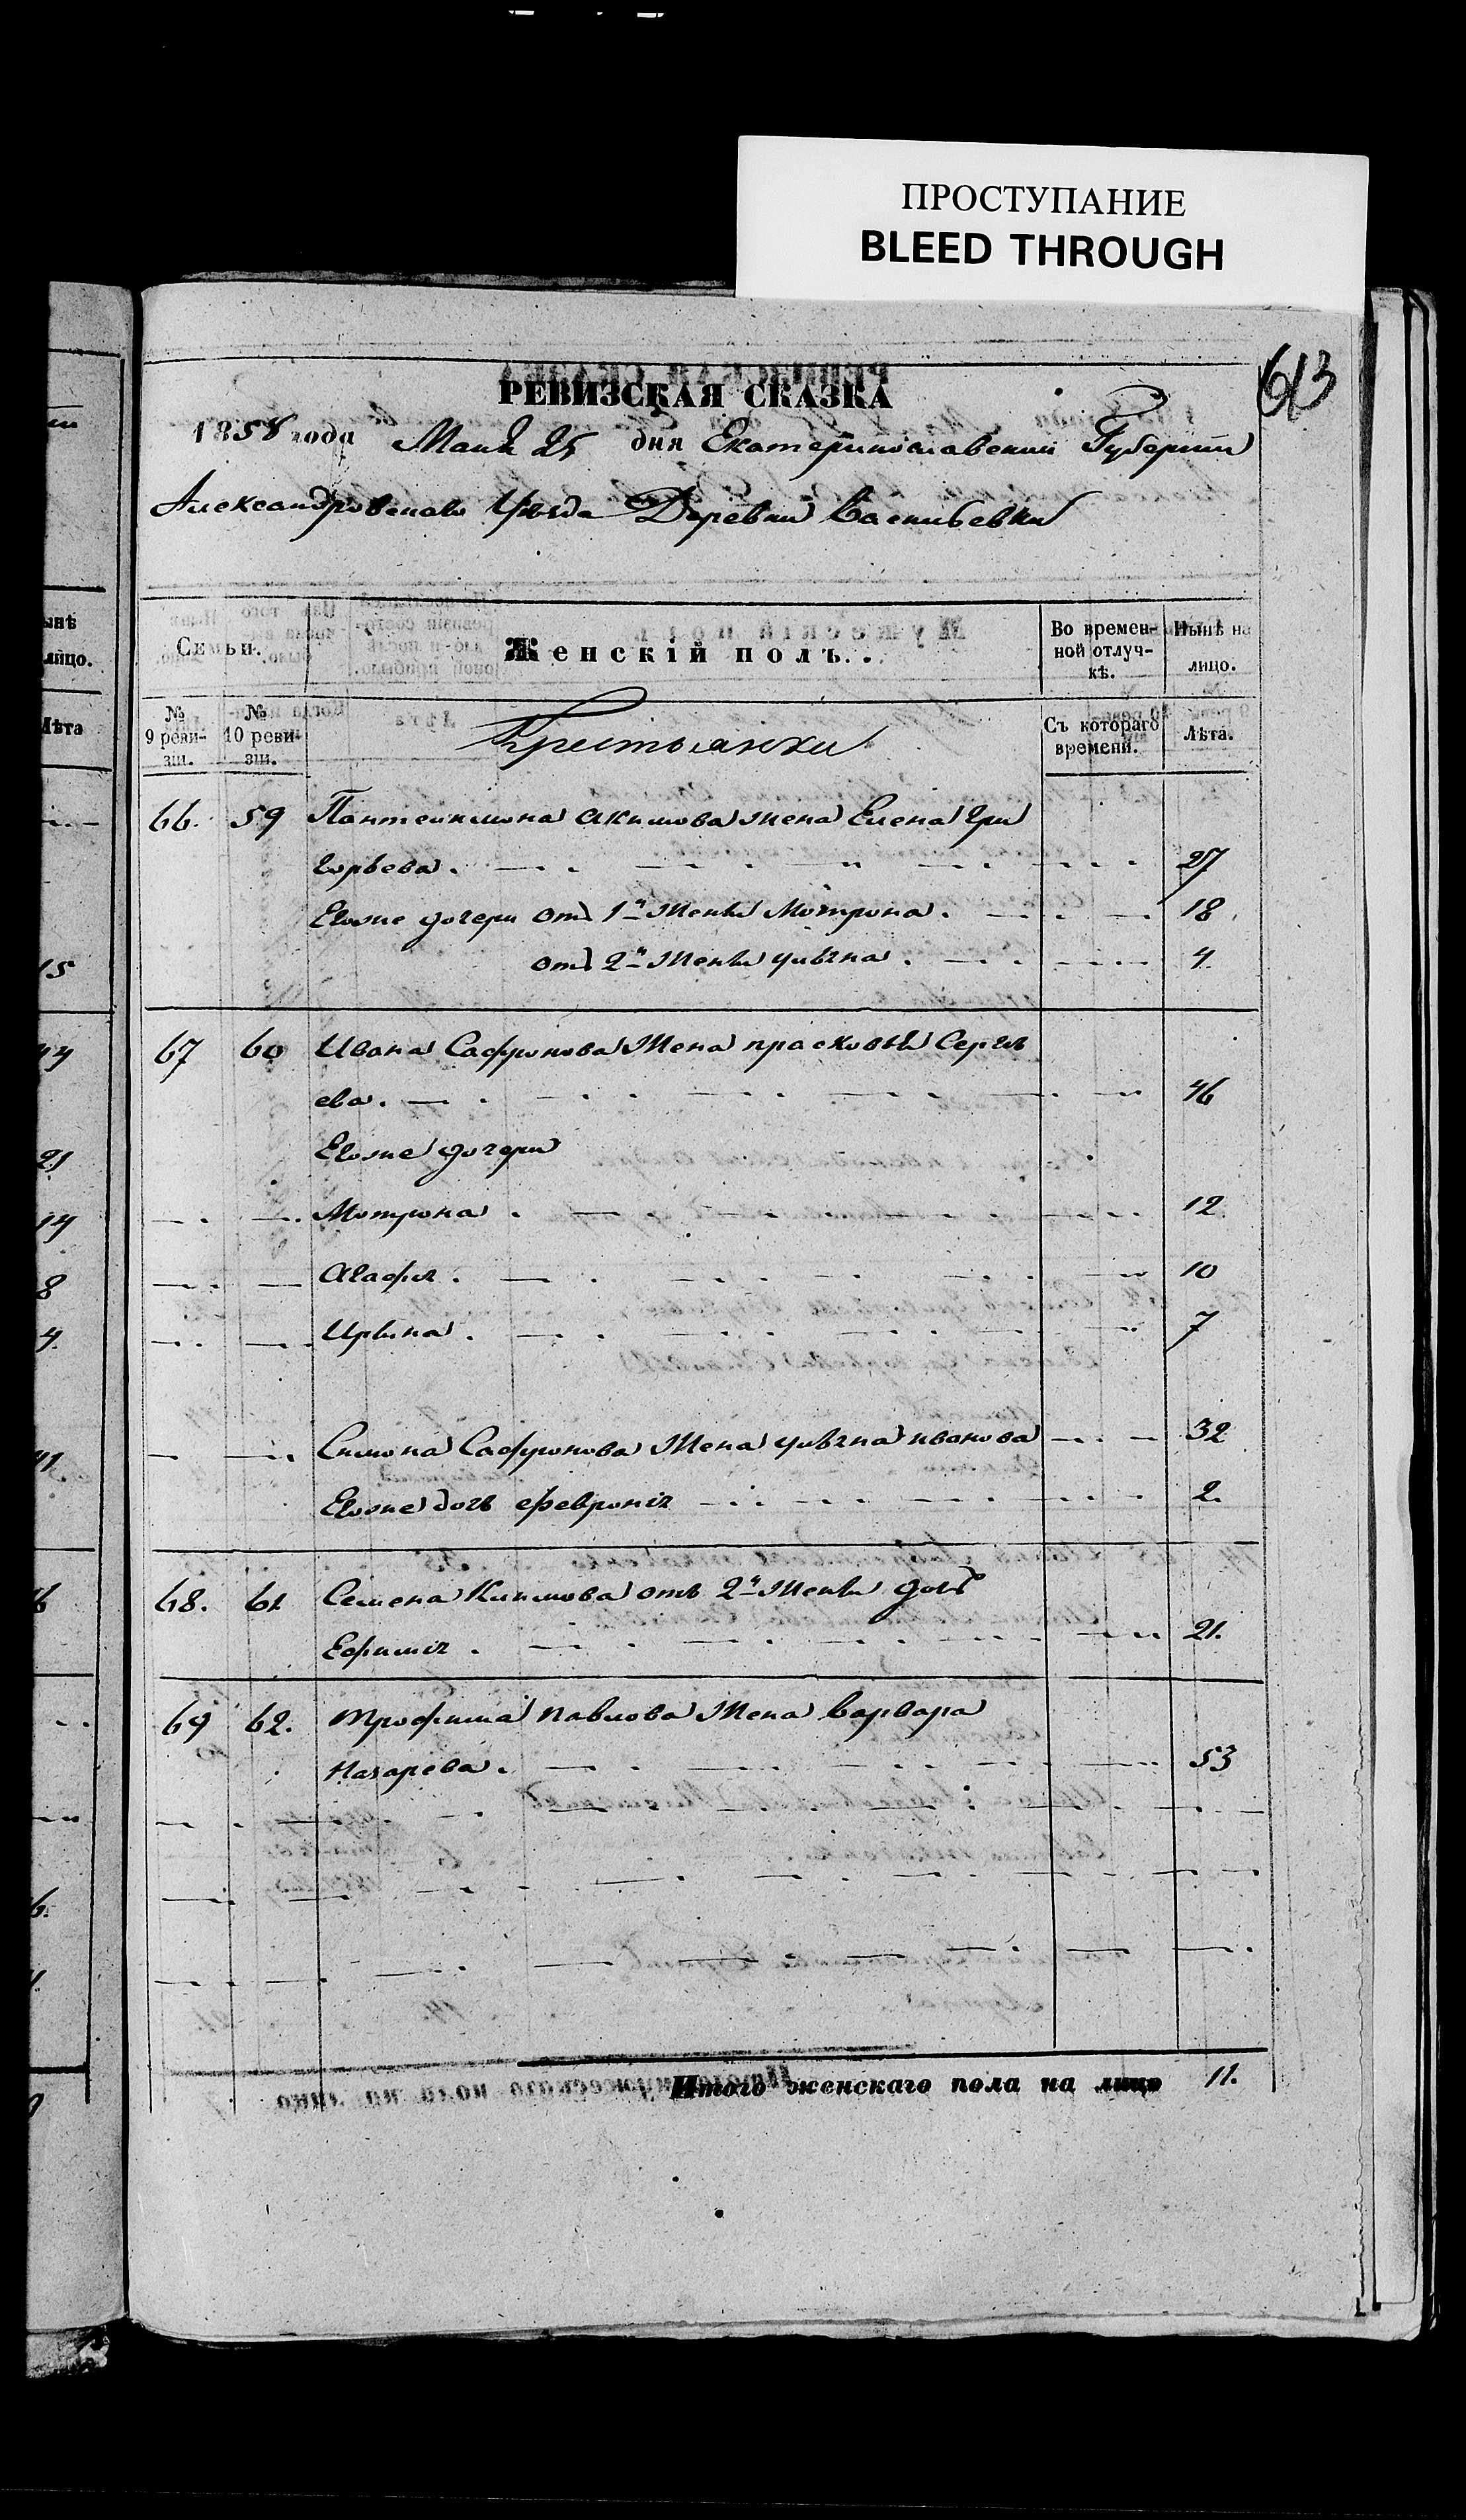 ПРОСТУПАНИЕ
BLEED THROUGH
613
РЕВИЗСКАЯ СКАЗКА
1858 года Маия 25 дня Екатеринославской Губернии
Александровскаго Уѣзда Деревни Васильевки
Семьи. Женскій полъ. Во времен-ной отлуч-кѣ. Нынѣ на лицо.
№ 9 реви-зіи. № 10 реви-зіи. Крестьянки Съ котораго времени. Лѣта.
66. 59 Пантеимона Акимова жена Елена Гри
горьева. 27
Егоже дочери отъ 1й жены Мотрона. 18
отъ 2й жены 4
67 60 Ивана Сафронова жена прасковья Сергѣ
ева. 46
Егоже дочери
Мотрона. 12
Агафия. 10
Ирына. 7
Симона Сафронова жена иванова 32
Егоже дочь Февронія 2.
68. 61 Семена Климова отъ 2й жены дочь
Ефимія. 21.
69 62. трофима павлова жена варвара
назарева. 53
Итого женскаго пола на лицо 11.